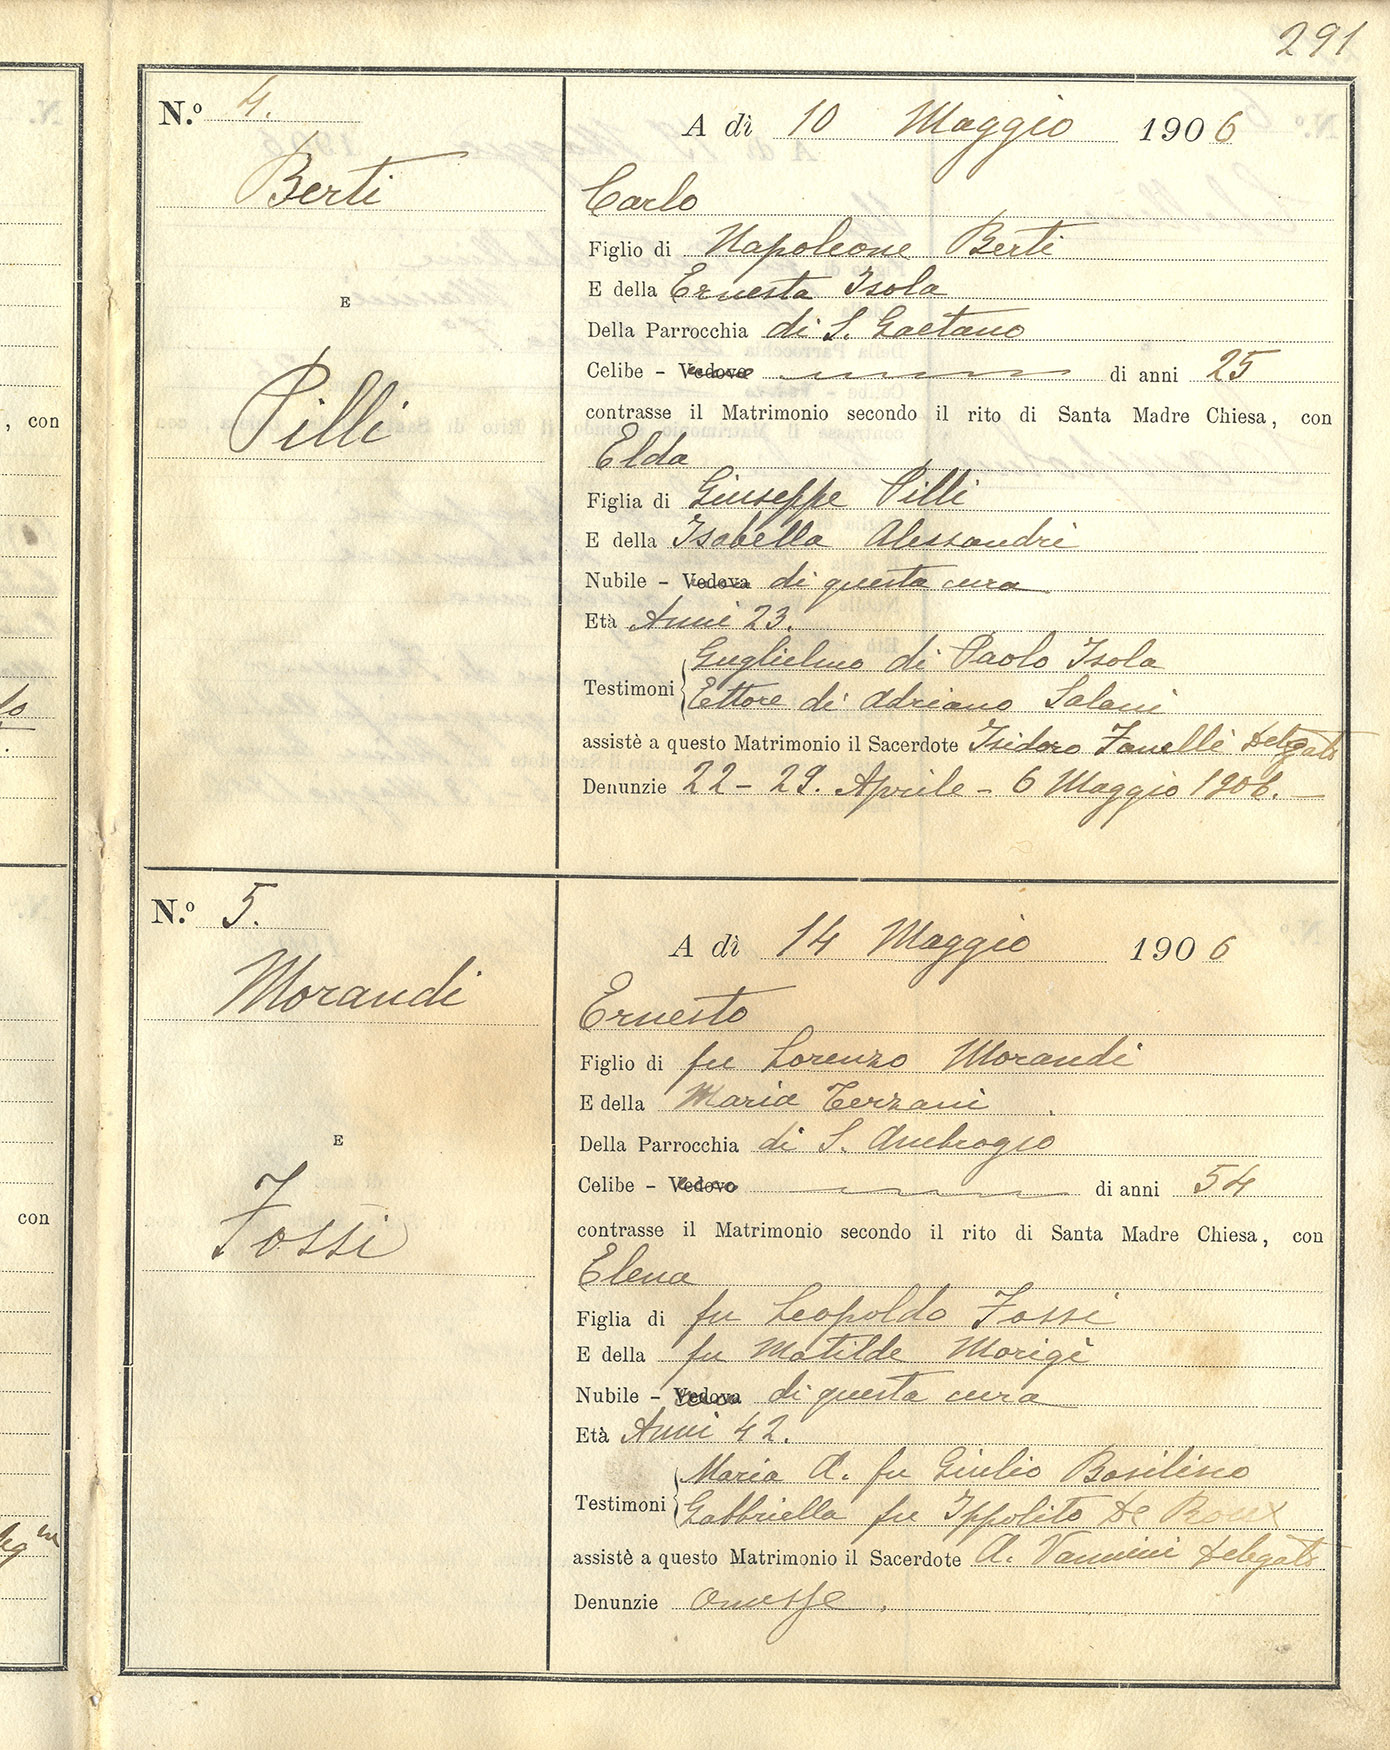 291
N.º 4.
Berti
E
Pilli
A dì 10 Maggio 1906
Carlo
Figlio di Napoleone Berti
E della Ernesta Isola
Della Parrocchia di S. Gaetano
Celibe - Vedovo di anni 25
contrasse il Matrimonio secondo il rito di Santa Madre Chiesa, con
Elda
Figlia di Giuseppe Pilli
E della Isabella Alessandri
Nubile - Vedova di questa cura
Età Anni 23.
Guglielmo di Paolo Isola
Testimoni
Ettore di Adriano Salani
assistè a questo Matrimonio il Sacerdote Isidoro Fanelli Delegato
Denunzie 22 - 29. Aprile - 6 Maggio 1906. -
N.º 5.
Morandi
E
Fossi
A dì 14 Maggio 1906
Ernesto
Figlio di fu Lorenzo Morandi
E della Maria Terzani
Della Parrocchia di S. Ambrogio
Celibe - Vedovo di anni 54
contrasse il Matrimonio secondo il rito di Santa Madre Chiesa, con
Elena
Figlia di fu Leopoldo Fossi
E della fu Matilde Morigi
Nubile - Vedova di questa cura
Età Anni 42.
Maria A. fu Giulio Basilisco
Testimoni
Gabbriella fu Ippolito De Roux
assistè a questo Matrimonio il Sacerdote A. Vannini Delegato
Denunzie omesse.
, con
con